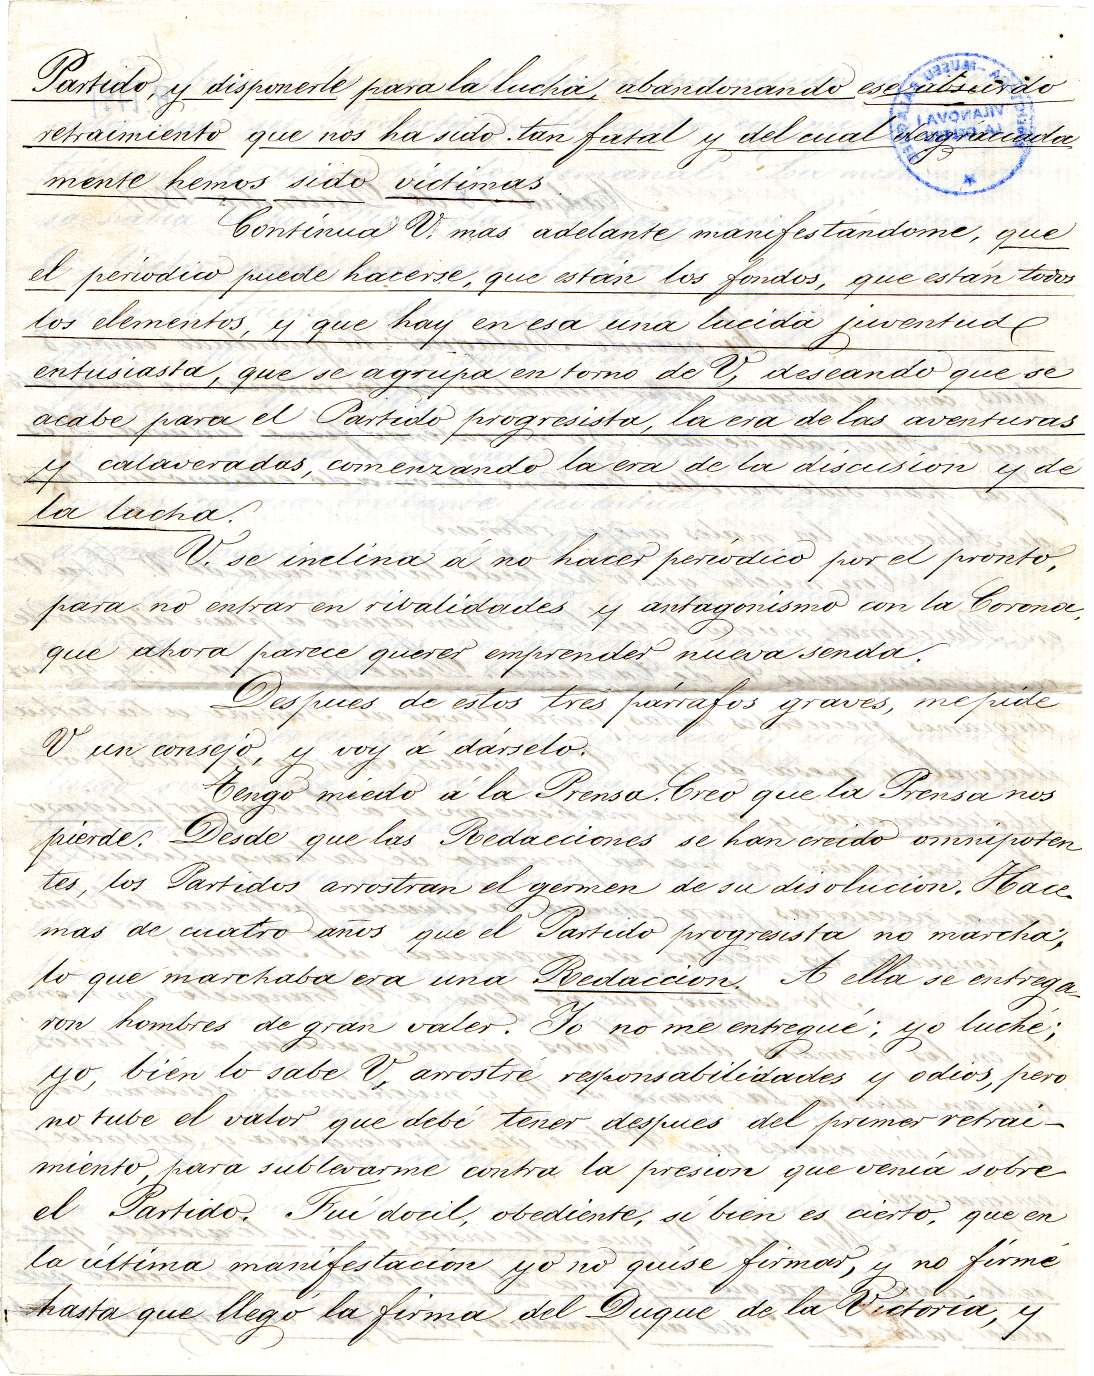 Partido, y disponerle para la lucha, abandonando ese absurdo
retraimiento que nos ha sido tan fatal y del cual desgraciada
mente hemos sido víctimas.
Contínua V. mas adelante manifestándome, que
el períodico puede hacerse, que están los fondos, que están todos
los elementos, y que hay en esa una lucida juventud
entusiasta, que se agrupa en torno de V, deseando que se
acabe para el Partido progresista, la era de las aventuras
y calaveradas, comenzando la era de la discusion y de
la lucha.
V. se inclina á no hacer períodico por el pronto,
para no entrar en rivalidades y antagonismo con la Corona,
que ahora parece querer emprender nueva senda.
Despues de estos tres párrafos graves, me pide
V un consejo, y voy á dárselo.
Tengo miedo á la Prensa. Creo que la Prensa nos
pierde. Desde que las Redacciones se han creido omnipoten
tes, los Partidos arrostran el germen de su disolucion. Hace
mas de cuatro años que el Partido progresista no marcha;
lo que marchaba era una Redaccion. A ella se entrega-
ron hombres de gran valer. Yo no me entregué; yo luché;
yo, bién lo sabe V, arrostré responsabilidades y odios, pero
no tube el valor que debí tener despues del primer retrai-
miento, para sublevarme contra la presion que venía sobre
el Partido. Fuí docil, obediente, si bien es cierto, que en
la última manifestación yo no quise firmar, y no firmé
hasta que llegó la firma del Duque de la Victoria, y
MUSEU
VILANOVA I